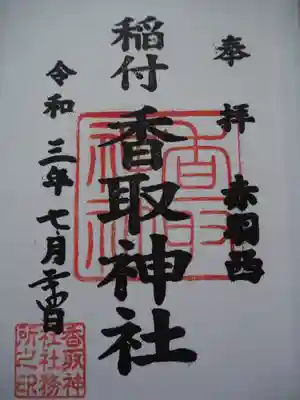 奉拝
赤羽西
稲付
香取神社
令和三年七月 日
香取
神社
香取神
社社務
所之印